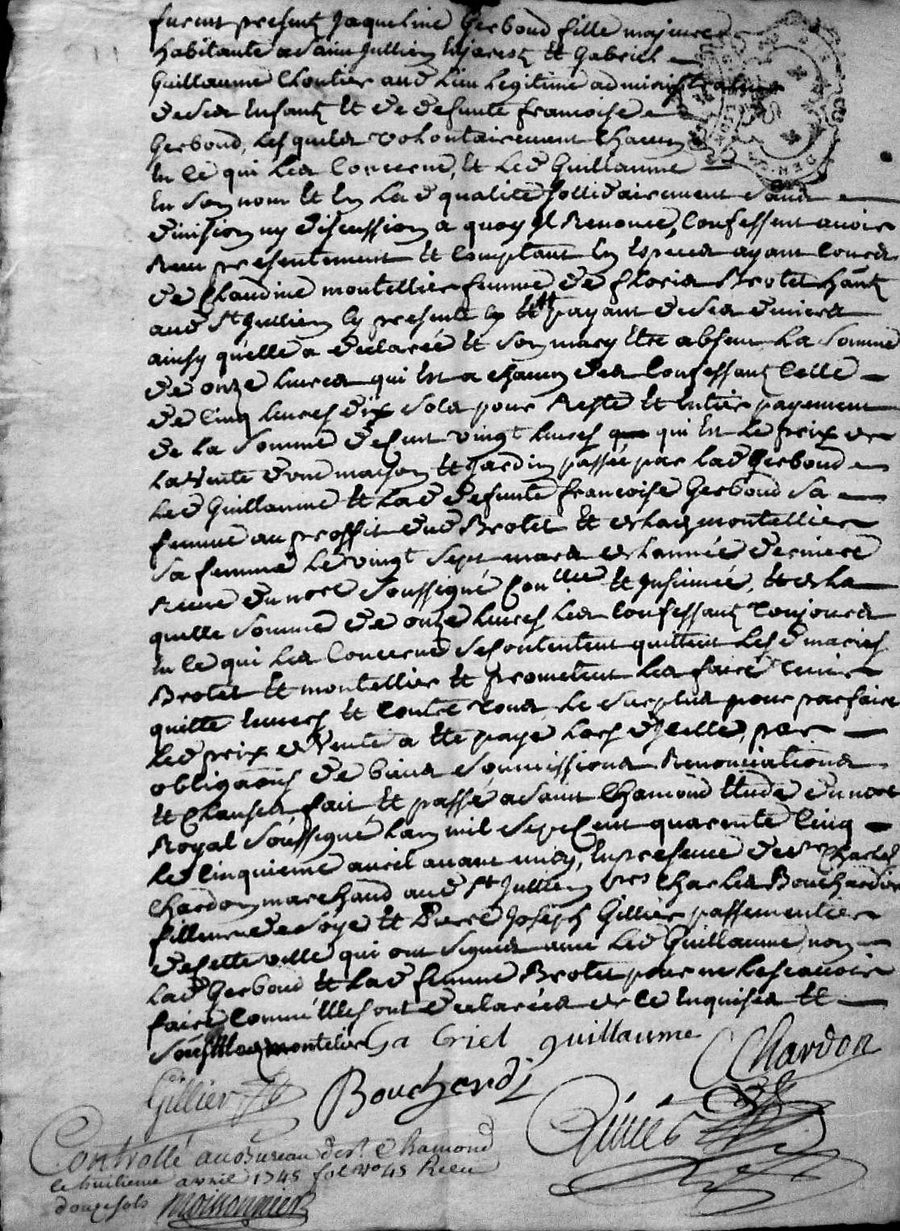 furent presents Jaqueline Gerboud fille majeure
habitante a Saint Jullien en Jarest et Gabriel
Guillaume Cloutier aud lieu legitime administrateur
de ses Enfants et de deffunte francoise
Gerboud, lesquels volontairement chacun
En ce qui les concerne, et led Guillaume
En son nom et en lad qualité sollidairement sans
division ny discussion a quoy il Renonce, Confessent avoir
Receu presentement et comptant en Especes ayant cours
de Claudine montellier femme de floris Brotet hants
aud St Jullien Cy presente Et payant de ses deniers
ainsy quelle a declarée et son mary Etre absent La somme
de onze livres qui Est a chacun des Confessants Celle
de Cinq livres dix sols pour Reste et Entier payement
de la somme de Cent vingt livres qui Est le prix de
La vente d'une maison et Jardin passée par lad Gerboud
led Guillaume et lad deffunte francoise Gerboud sa
femme au proffit dud Brotet et de lad montellier
sa femme le vingt sept mars de lannée derniere
Receue du nore soussigné Conllée et Insinuée, et de la
quelle somme de onze livres les Confessants toujours
En ce qui les concerne se contentent quittent lesd maries
Brotet et montellier et prometent les faire tenir
quitte Envers et contre tous le surplus pour parfaire
led prix de vente a Eté payé lors d'Icelle, par
obligaons de biens soumissions Renonciations
et Clauses fait et passé a Saint Chamond Etude du nore
Royal soussigné Lan mil sept Cent quarente Cinq
le Cinquieme avril avant midy, En presence de sr Charles
Chardon marchand aud St Jullien srs Charles Bouchardin
filleur de soye et Pierre Joseph Gillier passementier
de cette ville qui ont signés avec led Guillaume non
lad Gerboud et lad femme Brotet pour ne le scavoir
faire Comme Elles ont declarées de ce Enquises et
Soubs lad montelier
Gabriel guillaume
CChardon
Gillier
Bouchardi
Controllé au Bureau de st Chamond
le huitieme avril 1745 fol vo 45 Receu
douze sols